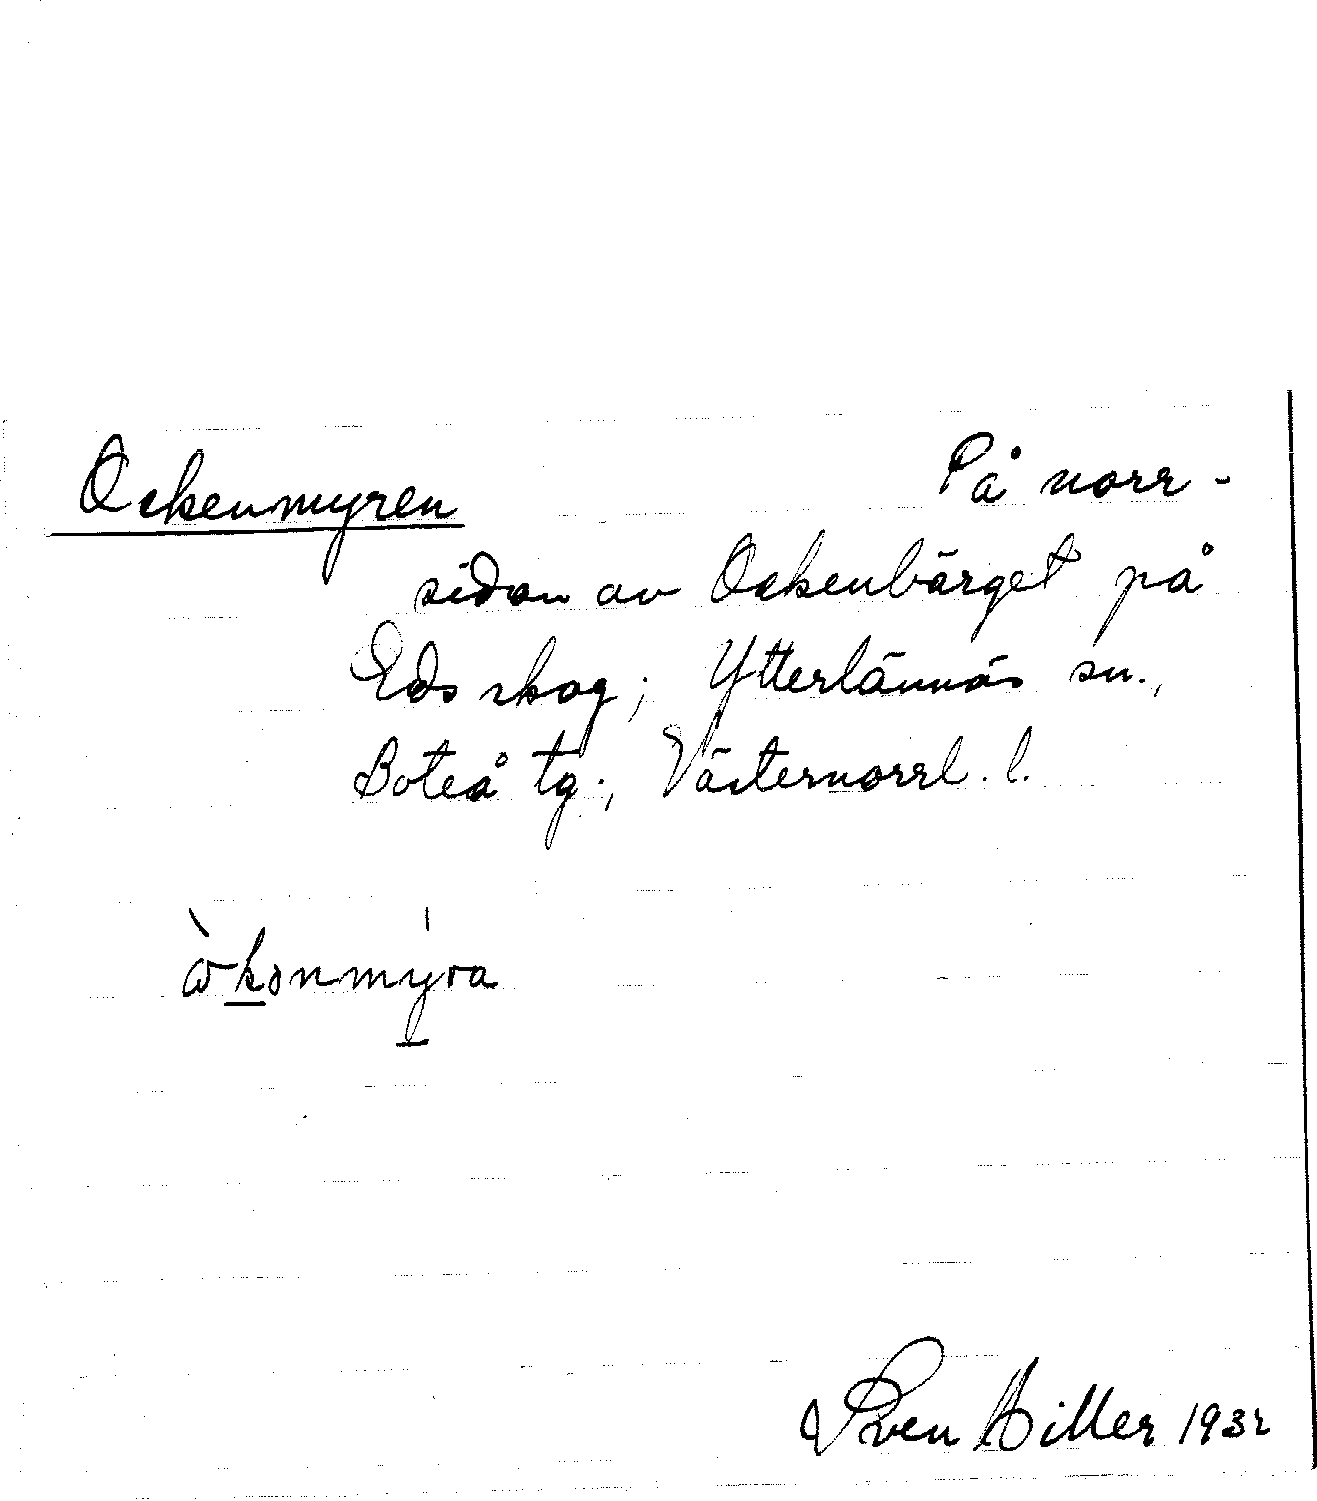 Ockenmyren
På norr-
sidan av Ockenbärget på
Eds skog; Ytterlännäs sn.,
Boteå tg., Västernorrl. l.
Sven Hiller 1932